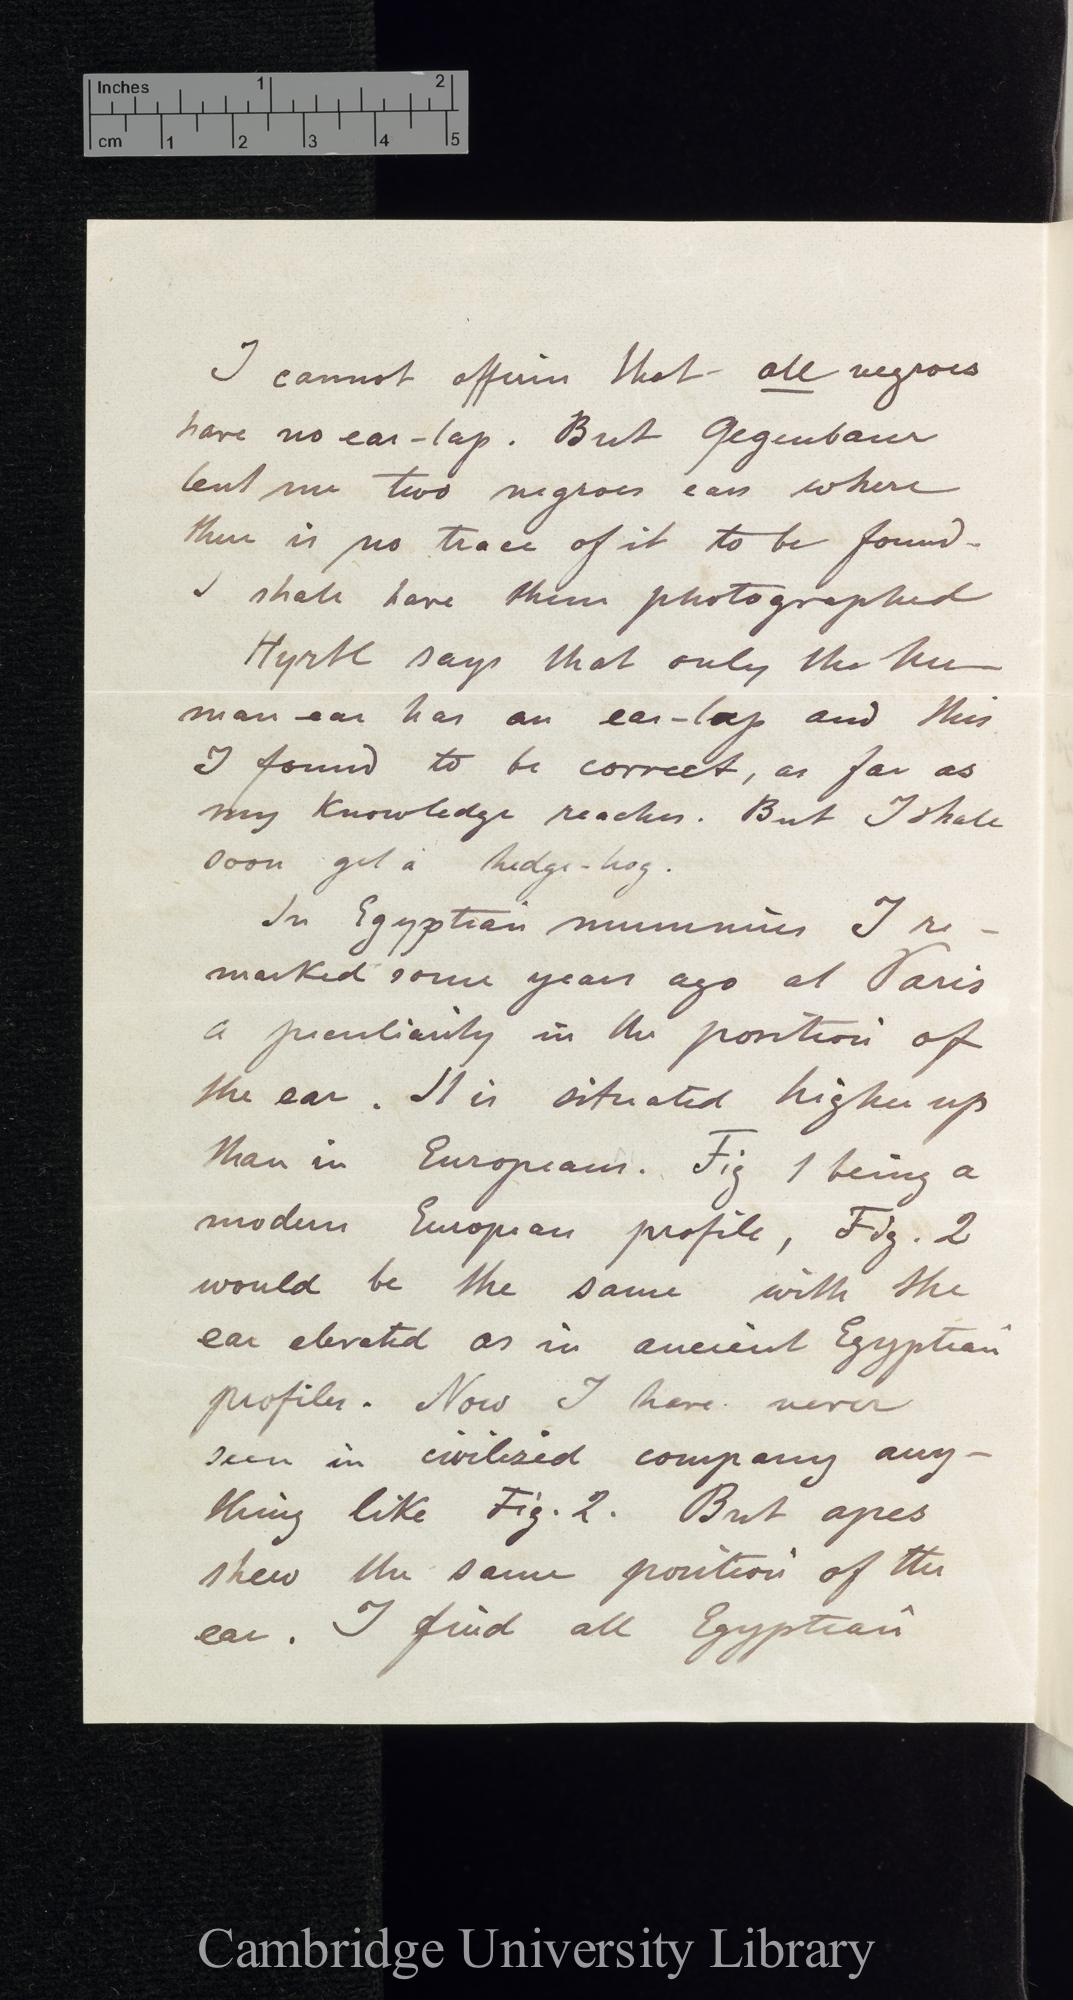 Inches 1 2
cm 1 2 3 4 5
I cannot affirm that all negroes
have no ear-lap. But Gegenbaur
lent me two negroes ears where
there is no trace of it to be found-
I shall have them photographed
Hyrtl says that only the hu-
man ear has an ear-lap and this
I found to be correct, as far as
my knowledge reaches. But I shall
soon get a hedge-hog.
In Egyptian mummies I re-
marked some years ago at Paris
a peculiarity in the position of
the ear. It is situated higher up
than in Europeans. Fig 1 being a
modern European profile, Fig. 2
would be the same with the
ear elevated as in ancient Egyptian
profiles. Now I have never
seen in civilized company any-
thing like Fig. 2. But apes
shew the same position of the
ear. I find all Egyptian
Cambridge University Library